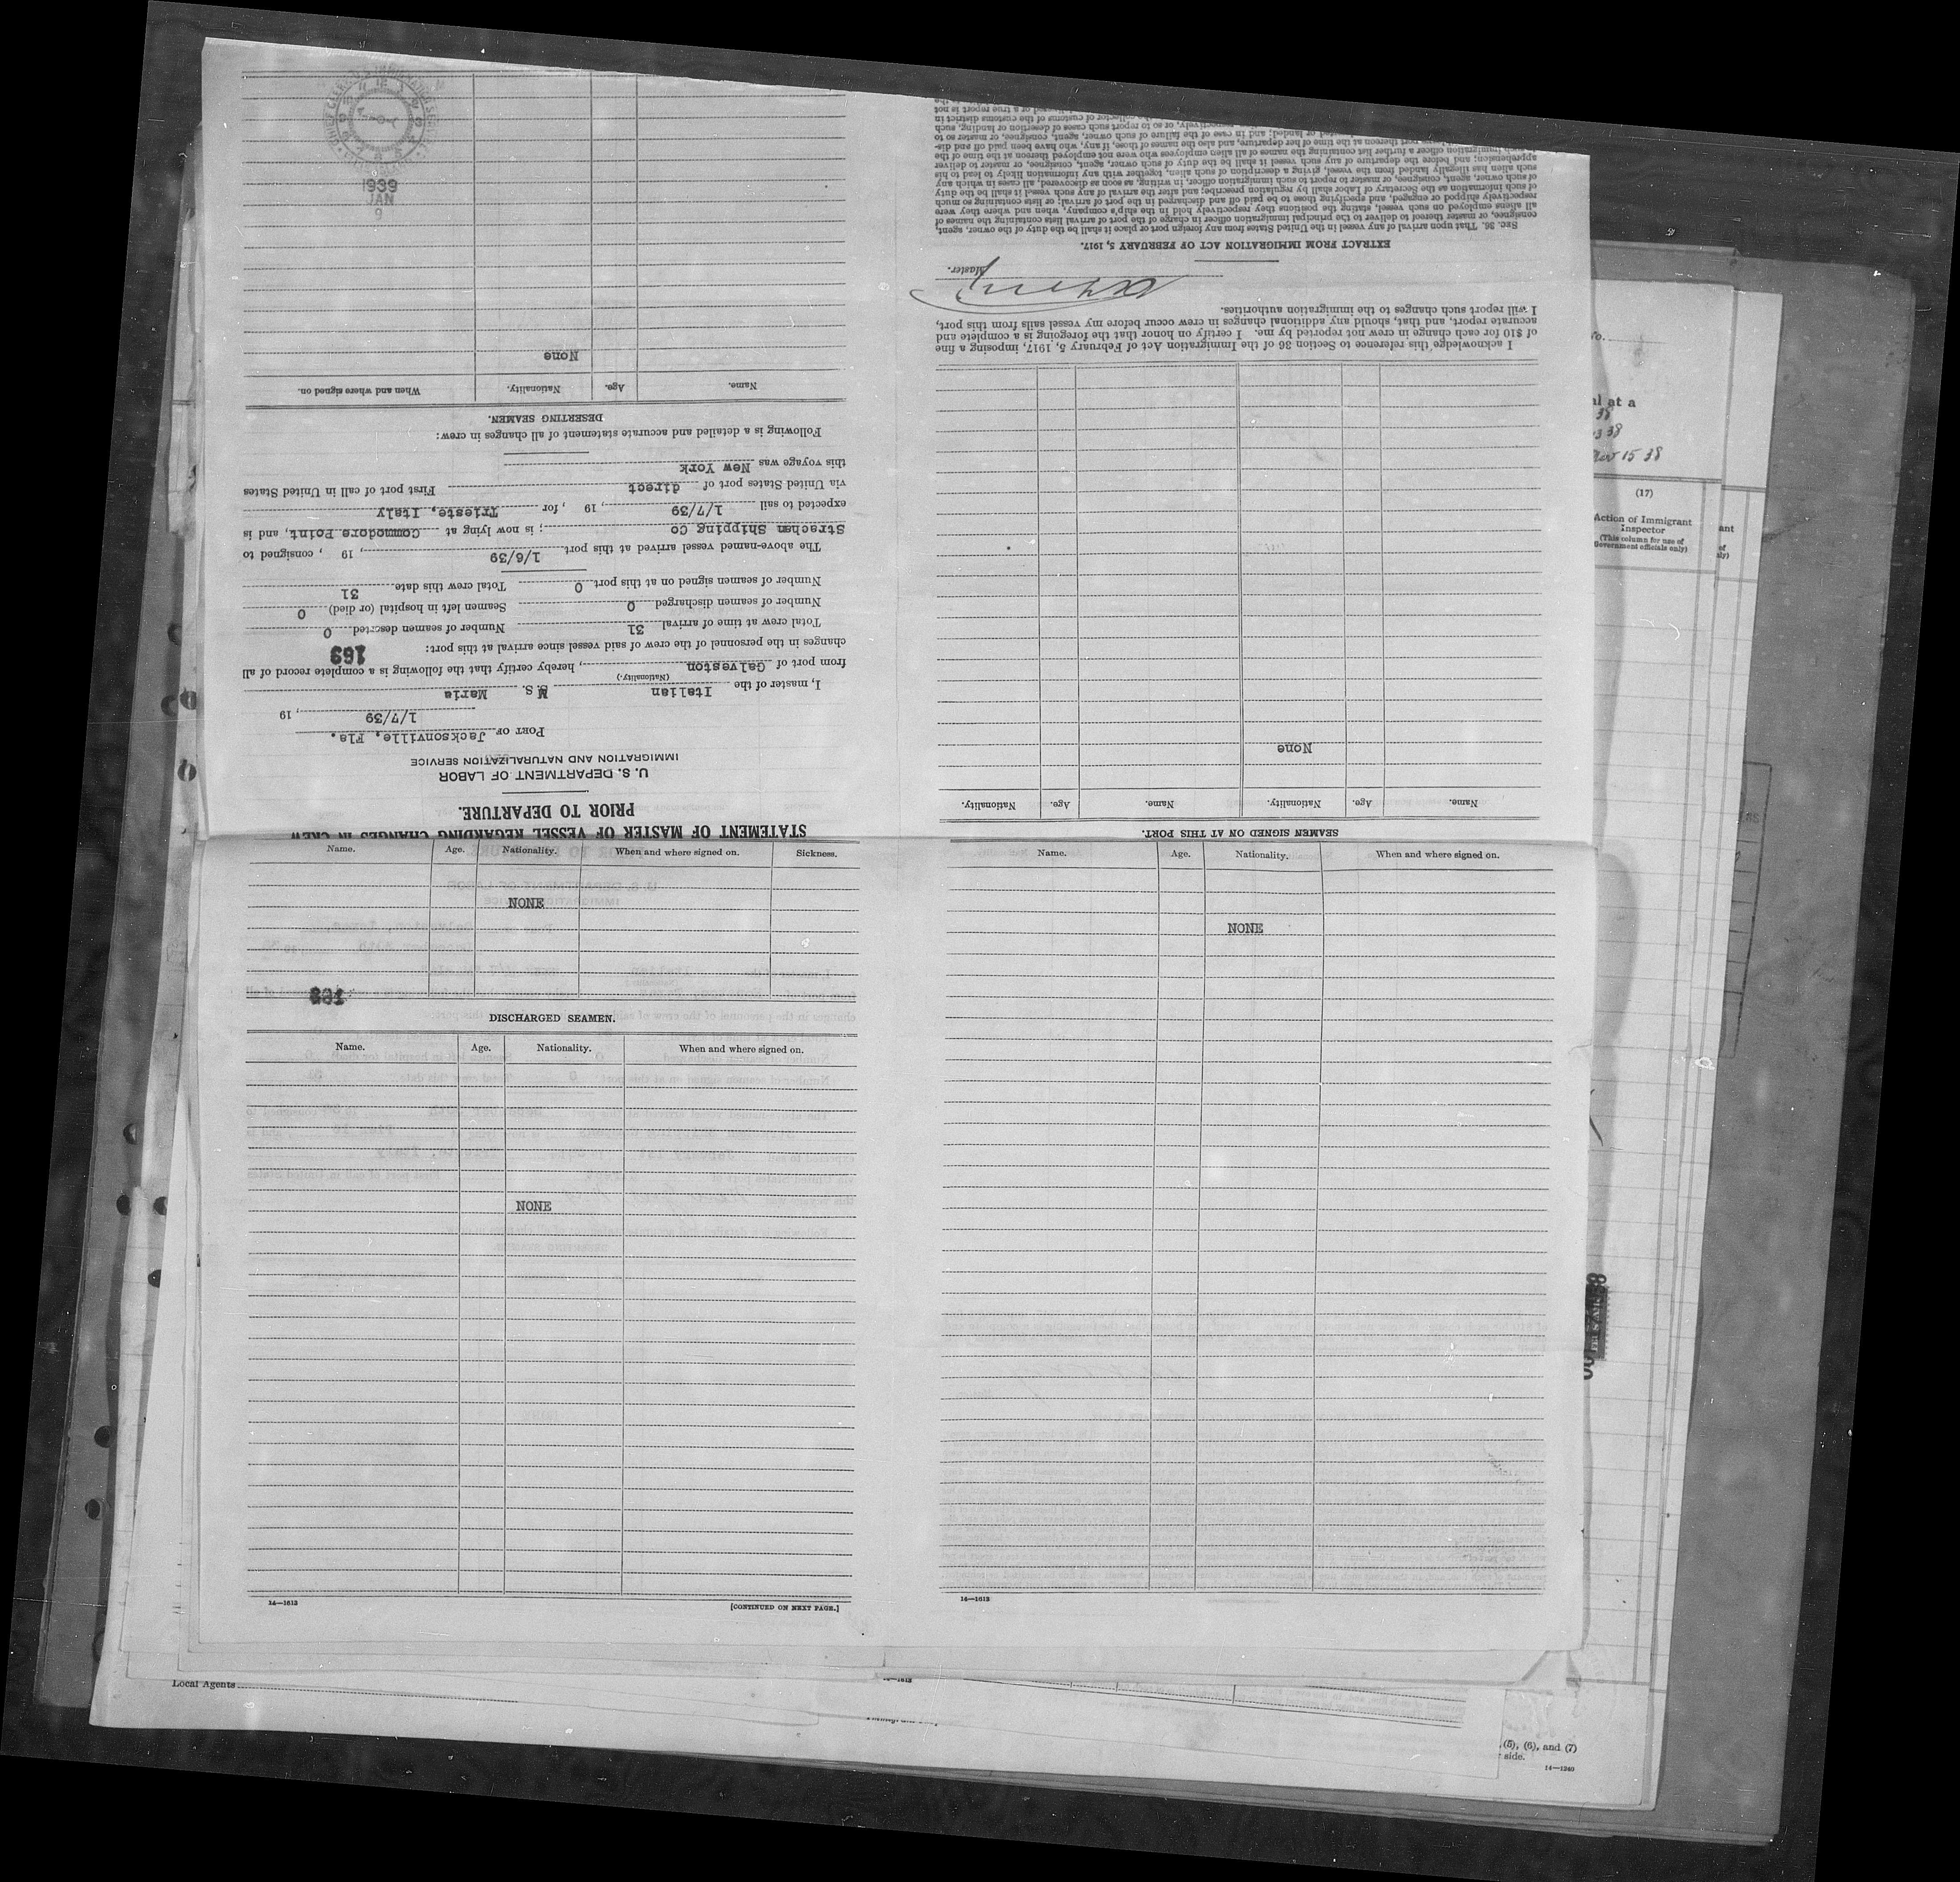 STATEMENT OF MASTER OF VESSEL REGARDING CHANGES IN CREW
PRIOR TO DEPARTURE.
U. S. DEPARTMENT OF LABOR
IMMIGRATION AND NATURALIZATION SERVICE
PORT OF Jacksonville, Fla.
1/7/39, 19
I, master of the Italian M S. Maria
(Nationality.)
from port of Galveston, hereby certify that the following is a complete record of all
changes in the personnel of the crew of said vessel since arrival at this port:
169
Total crew at time of arrival 31 Number of seamen deserted 0
Number of seamen discharged 0 Seamen left in hospital (or died) 0
Number of seamen signed on at this port 0 Total crew this date 31
The above-named vessel arrived at this port 1/6/39, 19 , consigned to
Strachan Shipping Co; is now lying at Commodore Point, and is
expected to sail 1/7/39, 19 , for Trieste, Italy
via United States port of direct First port of call in United States
this voyage was New York
Following is a detailed and accurate statement of all changes in crew:
DESERTING SEAMEN.
Name. Age. Nationality. When and where signed on.
None
1939
JAN
9
SEAMEN SIGNED ON AT THIS PORT.
Name. Age. Nationality. Name. Age. Nationality.
None
I acknowledge this reference to Section 36 of the Immigration Act of February 5, 1917, imposing a fine
of $10 for each change in crew not reported by me. I certify on honor that the foregoing is a complete and
accurate report, and that, should any additional changes in crew occur before my vessel sails from this port,
I will report such changes to the immigration authorities.
Master.
EXTRACT FROM IMMIGRATION ACT OF FEBRUARY 5, 1917.
Sec. 36. That upon arrival of any vessel in the United States from any foreign port or place it shall be the duty of the owner, agent,
consignee, or master thereof to deliver to the principal immigration officer in charge of the port of arrival lists containing the names of
all aliens employed on such vessel, stating the positions they respectively hold in the ship's company, when and where they were
respectively shipped or engaged, and specifying those to be paid off and discharged in the port of arrival; or lists containing so much
of such information as the Secretary of Labor shall by regulation prescribe; and after the arrival of any such vessel it shall be the duty
of such owner, agent, consignee, or master to report to such immigration officer, in writing, as soon as discovered, all cases in which any
such alien has illegally landed from the vessel, giving a description of such alien, together with any information likely to lead to his
apprehension; and before the departure of any such vessel it shall be the duty of such owner, agent, consignee, or master to deliver
immigration officer a further list containing the names of all alien employees who were not employed thereon at the time of the
port thereon at the time of her departure, and also the names of those, if any, who have been paid off and dis-
or landed; and in case of the failure of such owner, agent, consignee, or master so to
respectively, or so to report such cases of desertion or landing, such
collector of customs of the customs district in
or a true report is not
Name. Age. Nationality. When and where signed on. Sickness.
NONE
DISCHARGED SEAMEN.
Name. Age. Nationality. When and where signed on.
NONE
14—1613
[CONTINUED ON NEXT PAGE.]
Name. Age. Nationality. When and where signed on.
NONE
14—1613
al at a
38
Nov 15 38
(17)
Action of Immigrant
Inspector
(This column for use of
Government officials only)
Local Agents
(5), (6), and (7)
side.
14—1240